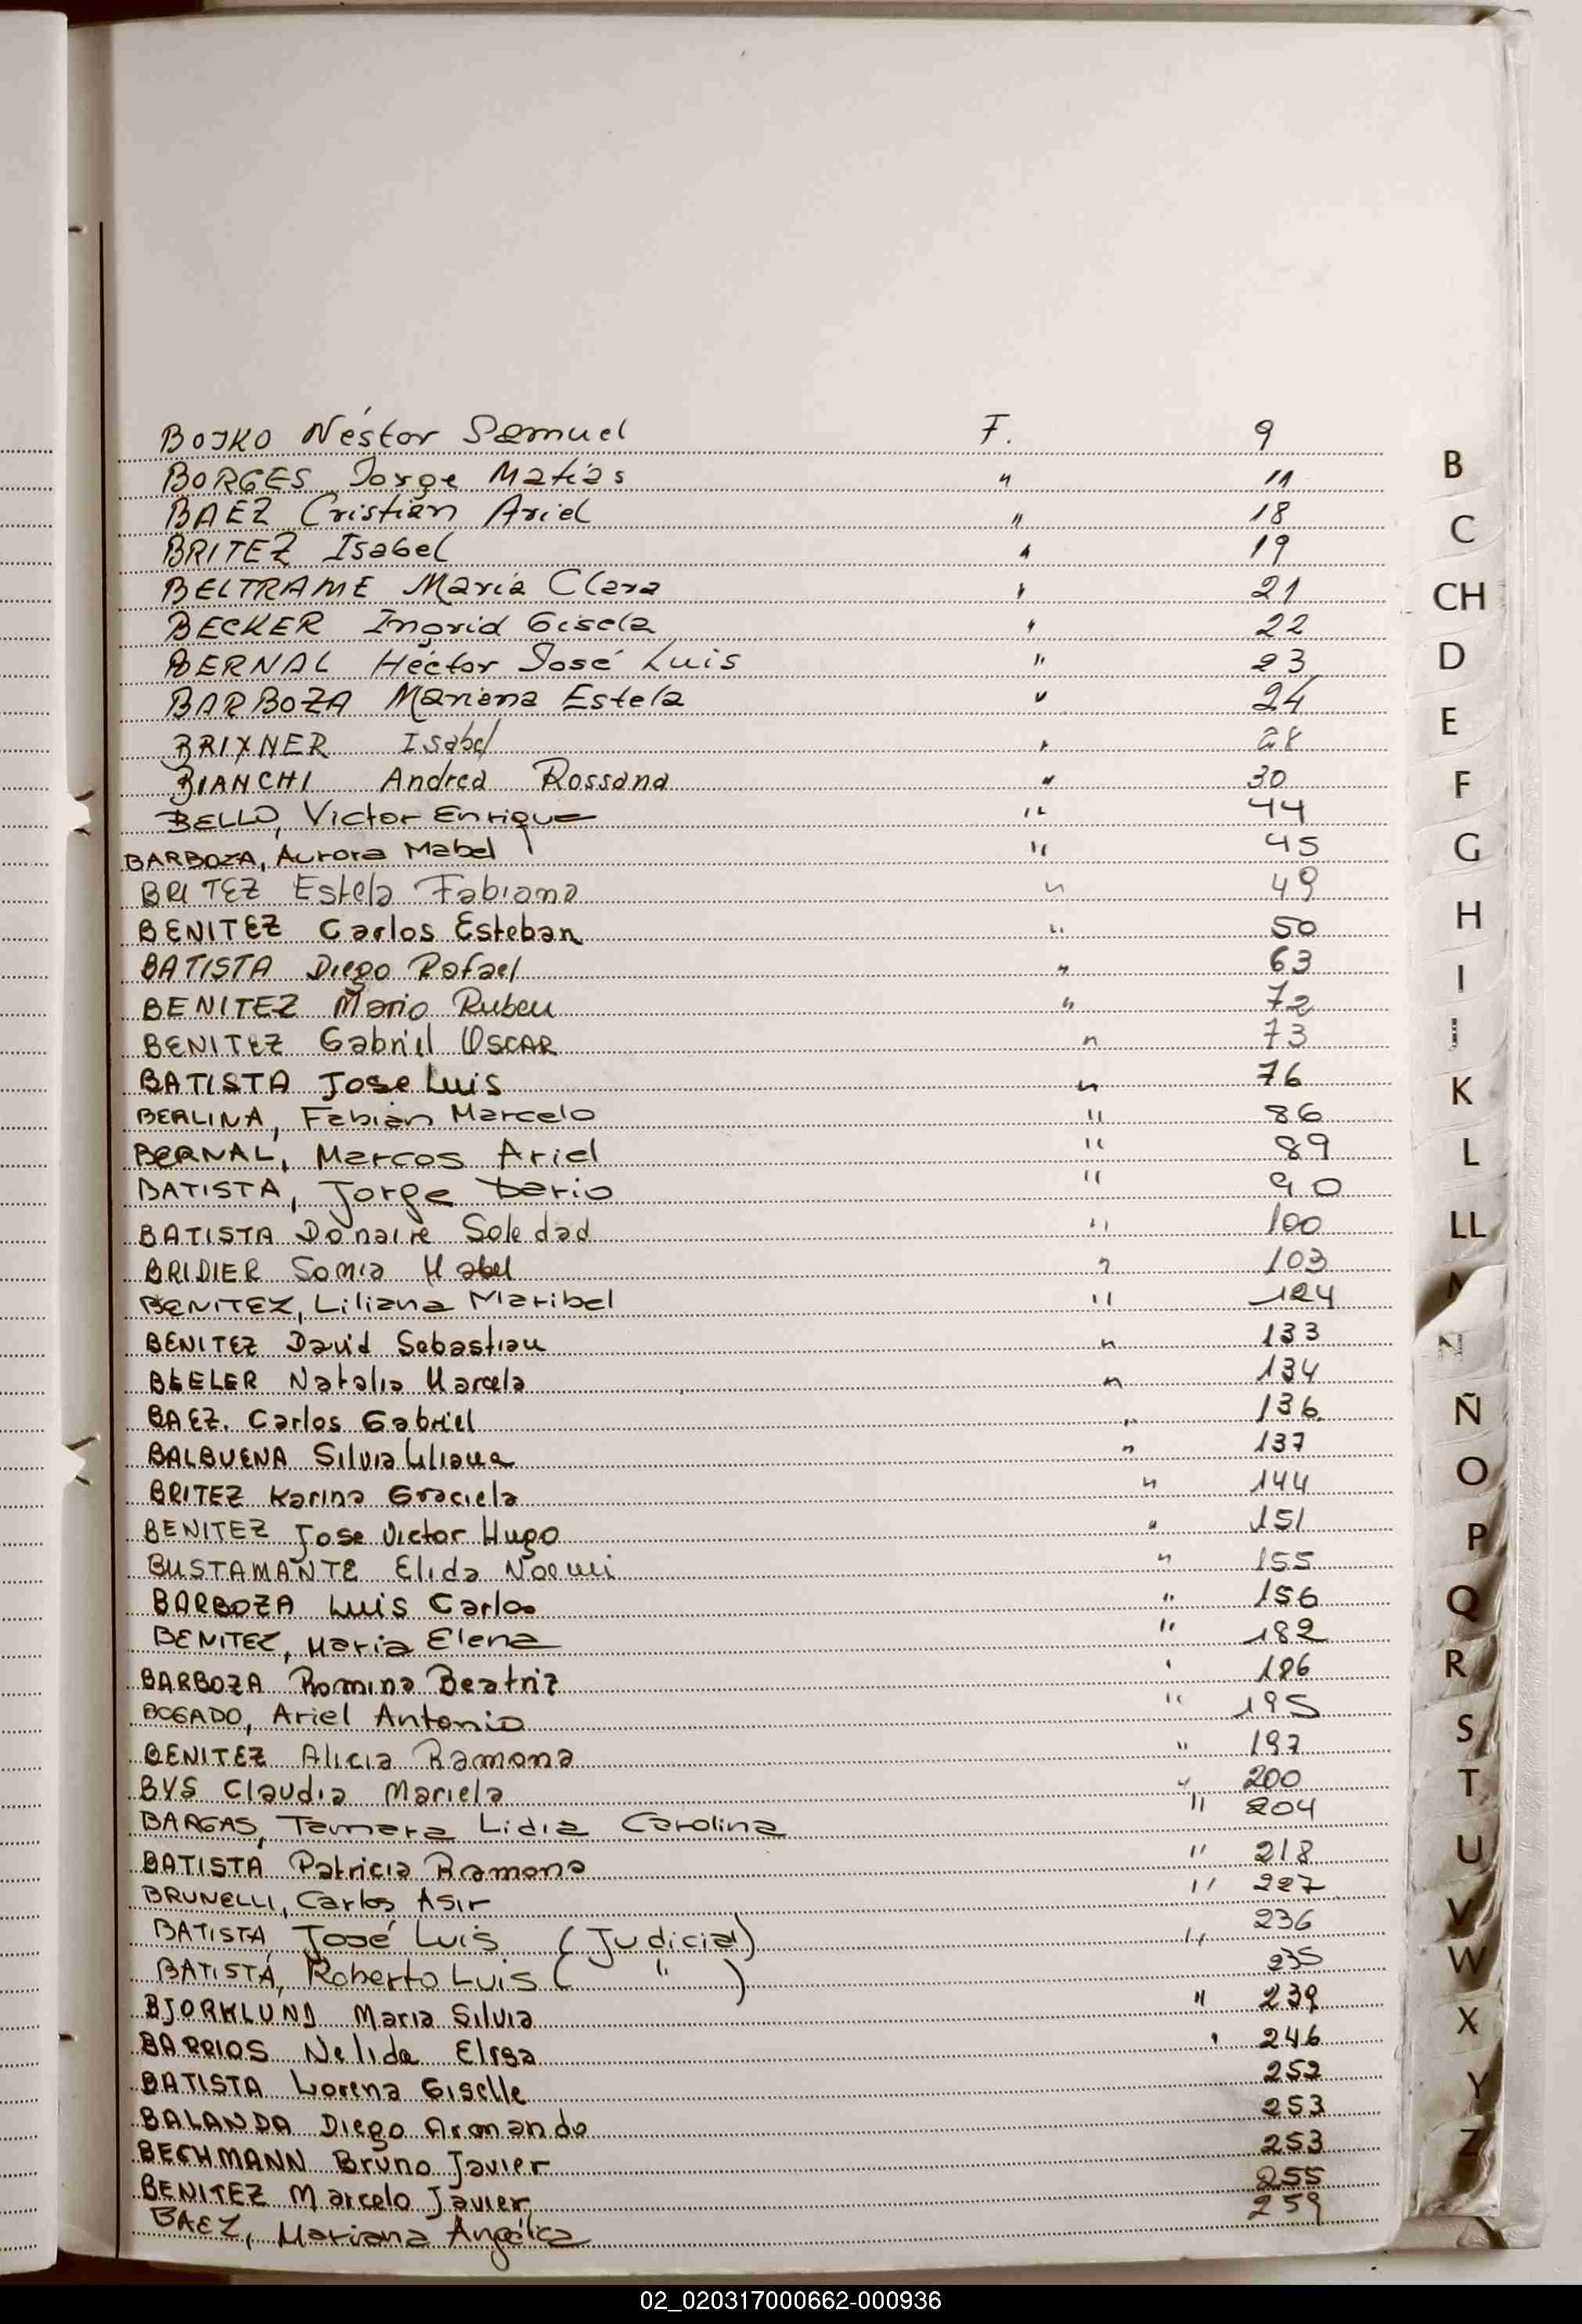 BOJKO Néstor Samuel F. 9
BORGES Jorge Matías " 11
BAEZ Cristian Ariel " 18
BRITEZ Isabel " 19
BELTRAME María Clara " 21
BECKER Ingrid Gisela " 22
BERNAL Héctor José Luis " 23
BARBOZA Mariana Estela " 24
BRIXNER Isabel " 28
BIANCHI Andrea Rossana " 30
BELLO, Victor Enrique " 44
BARBOZA, Aurora Mabel " 45
BRITEZ Estela Fabiana " 49
BENITEZ Carlos Esteban " 50
BATISTA Diego Rafael " 63
BENITEZ Mario Ruben " 72
BENITEZ Gabriel OSCAR " 73
BATISTA Jose Luis " 76
BERLINA, Fabián Marcelo " 86
BERNAL, Marcos Ariel " 89
BATISTA, Jorge Dario " 90
BATISTA Donaire Soledad " 100
BRIDIER Sonia Mabel " 103
BENITEZ, Liliana Maribel " 124
BENITEZ David Sebastian " 133
BEELER Natalia Marcela " 134
BAEZ. Carlos Gabriel " 136
BALBUENA Silvia Liliana " 137
BRITEZ Karina Graciela " 144
BENITEZ Jose Victor Hugo " 151
BUSTAMANTE Elida Noemi " 155
BARBOZA Luis Carlos " 156
BENITEZ, Maria Elena " 182
BARBOZA Romina Beatriz " 186
BOGADO, Ariel Antonio " 195
BENITEZ Alicia Ramona " 197
BYS Claudia Mariela " 200
BARGAS, Tamara Lidia Carolina " 204
BATISTA Patricia Ramona " 218
BRUNELLI, Carlos Asir " 227
BATISTA, José Luis (Judicial) " 236
BATISTA, Roberto Luis ( " ) 235
BJORKLUND Maria Silvia " 239
BARRIOS Nelida Elisa " 246
BATISTA Lorena Giselle 252
BALANDA Diego Armando 253
BECHMANN Bruno Javier 253
BENITEZ Marcelo Javier 255
BAEZ, Mariana Angélica 259
B
C
CH
D
E
F
G
H
I
J
K
L
LL
M
N
Ñ
O
P
Q
R
S
T
U
V
W
X
Y
Z
02_020317000662-000936